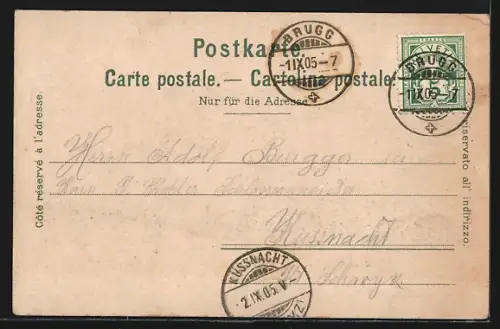 Postkarte.
Carte postale. — Cartolina postale.
Nur für die Adresse
BRUGG
-1 IX 05-7
HELVETIA
5
BRUGG
-1 IX 05-7
Côté réservé à l'adresse.
riservato all' indirizzo.
Herrn Adolf Brugger
Küssnacht
Kt. Schwyz
KÜSSNACHT
2.IX.05.V